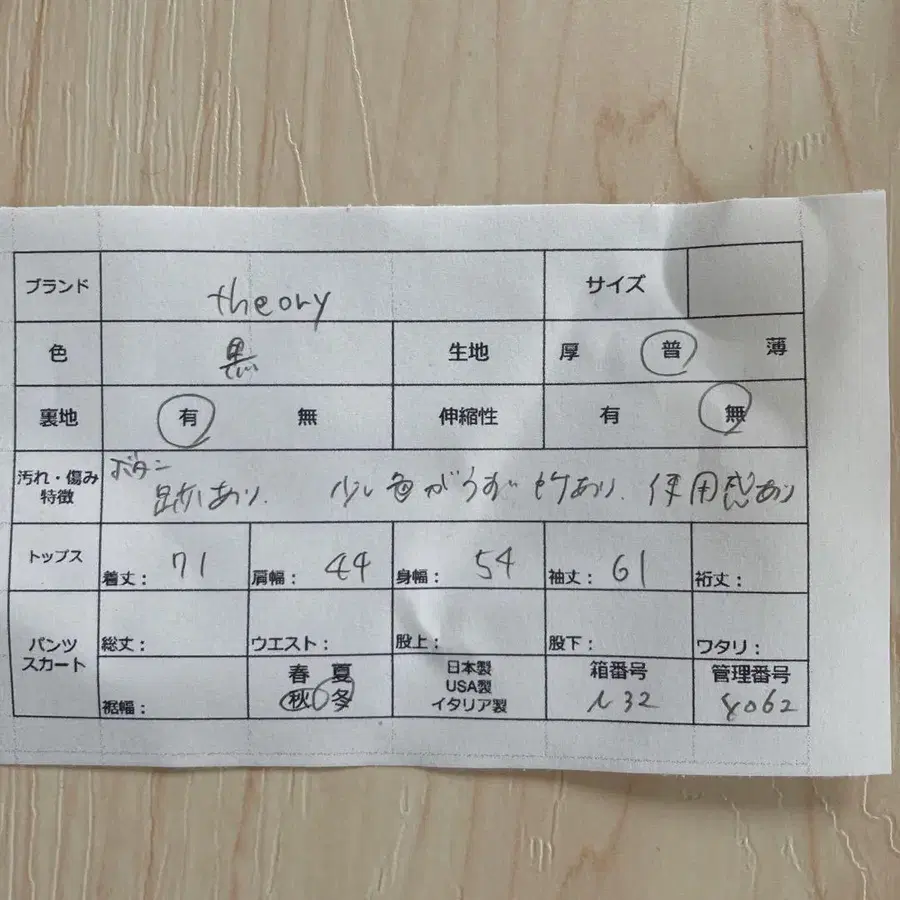 ブランド theory サイズ
色 黒 生地 厚 普 薄
裏地 有 無 伸縮性 有 無
汚れ・傷み
特徴
ボタン
跡あり. 少し色がうすい あり. 使用感あり
トップス 着丈: 71 肩幅: 44 身幅: 54 袖丈: 61 裄丈:
パンツ
スカート
総丈: ウエスト: 股上: 股下: ワタリ:
裾幅:
春 夏
秋 冬
日本製
USA製
イタリア製
箱番号
32
管理番号
4062